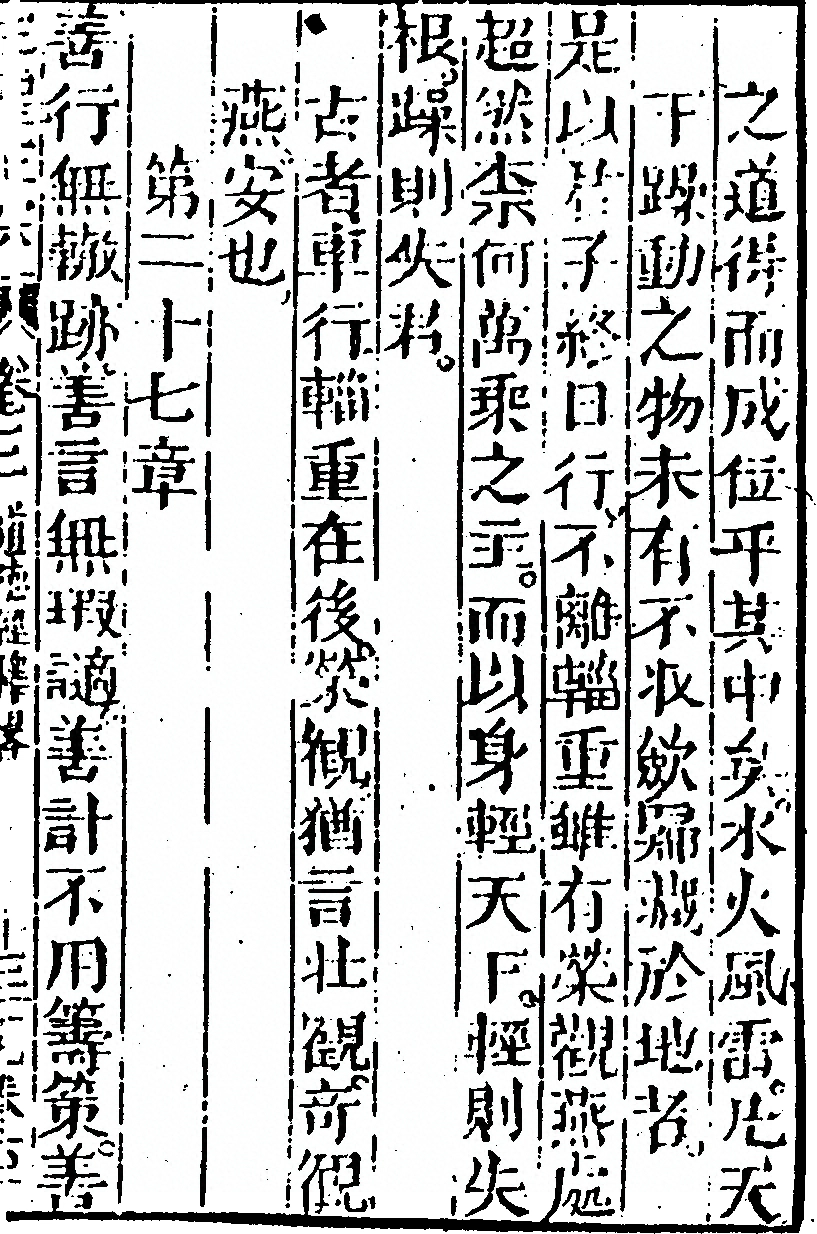 之道得而成位乎其中矣水火風雷凡天
下躁動之物未有不收歛歸藏於地者
是以君子終日行不離輜重雖有榮觀燕處
超然柰何萬乘之主而以身輕天下輕則失
根躁則失君
古者車行輜重在後榮觀猶言壯觀奇觀
燕安也
第二十七章
善行無轍跡善言無瑕讁善計不用籌策善